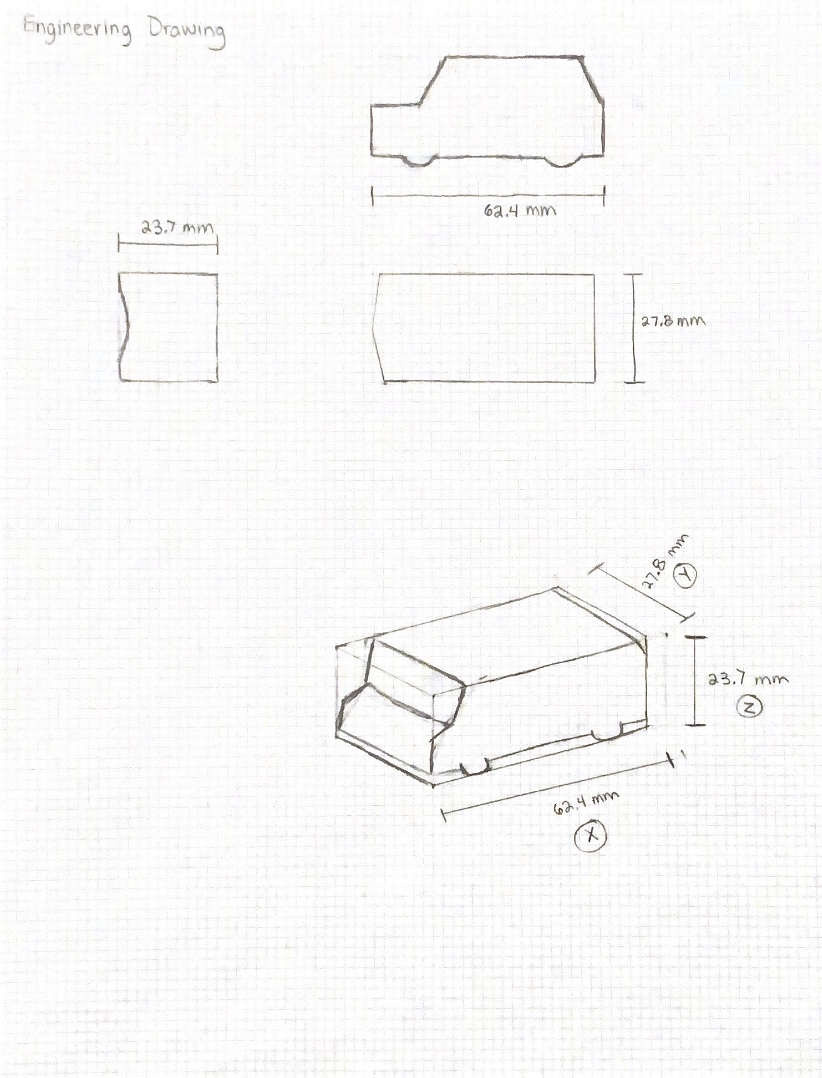 Engineering Drawing
62.4 mm
23.7 mm
27.8 mm
27.8 mm
Y
23.7 mm
Z
62.4 mm
X